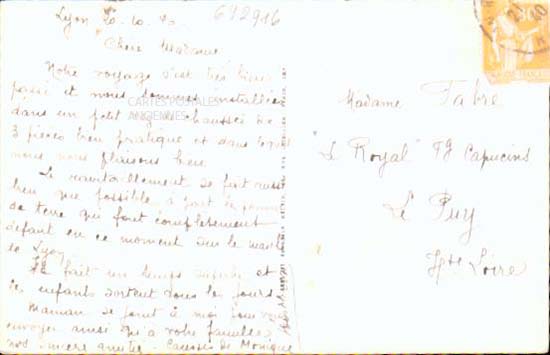 692916
Lyon
Chère Madame
Notre voyage s'est très bien
passé et nous sommes installées
dans un petit rez de chaussée de
3 pièces bien pratique et dans
nous nous plaisons bien
Le ravitaillement se fait aussi
bien que possible à part les pommes
de terre qui font complètement
défaut en ce moment sur le marché
de Lyon
Il fait un temps superbe et
les enfants sortent tous les jours
Maman se joint à moi pour vous
envoyer ainsi qu'à votre famille
nos sincère amitié. Causses de Monique
CARTES POSTALES
ANCIENNES
Madame Fabre
"Le Royal" Fg Capucins
Le Puy
Hte Loire